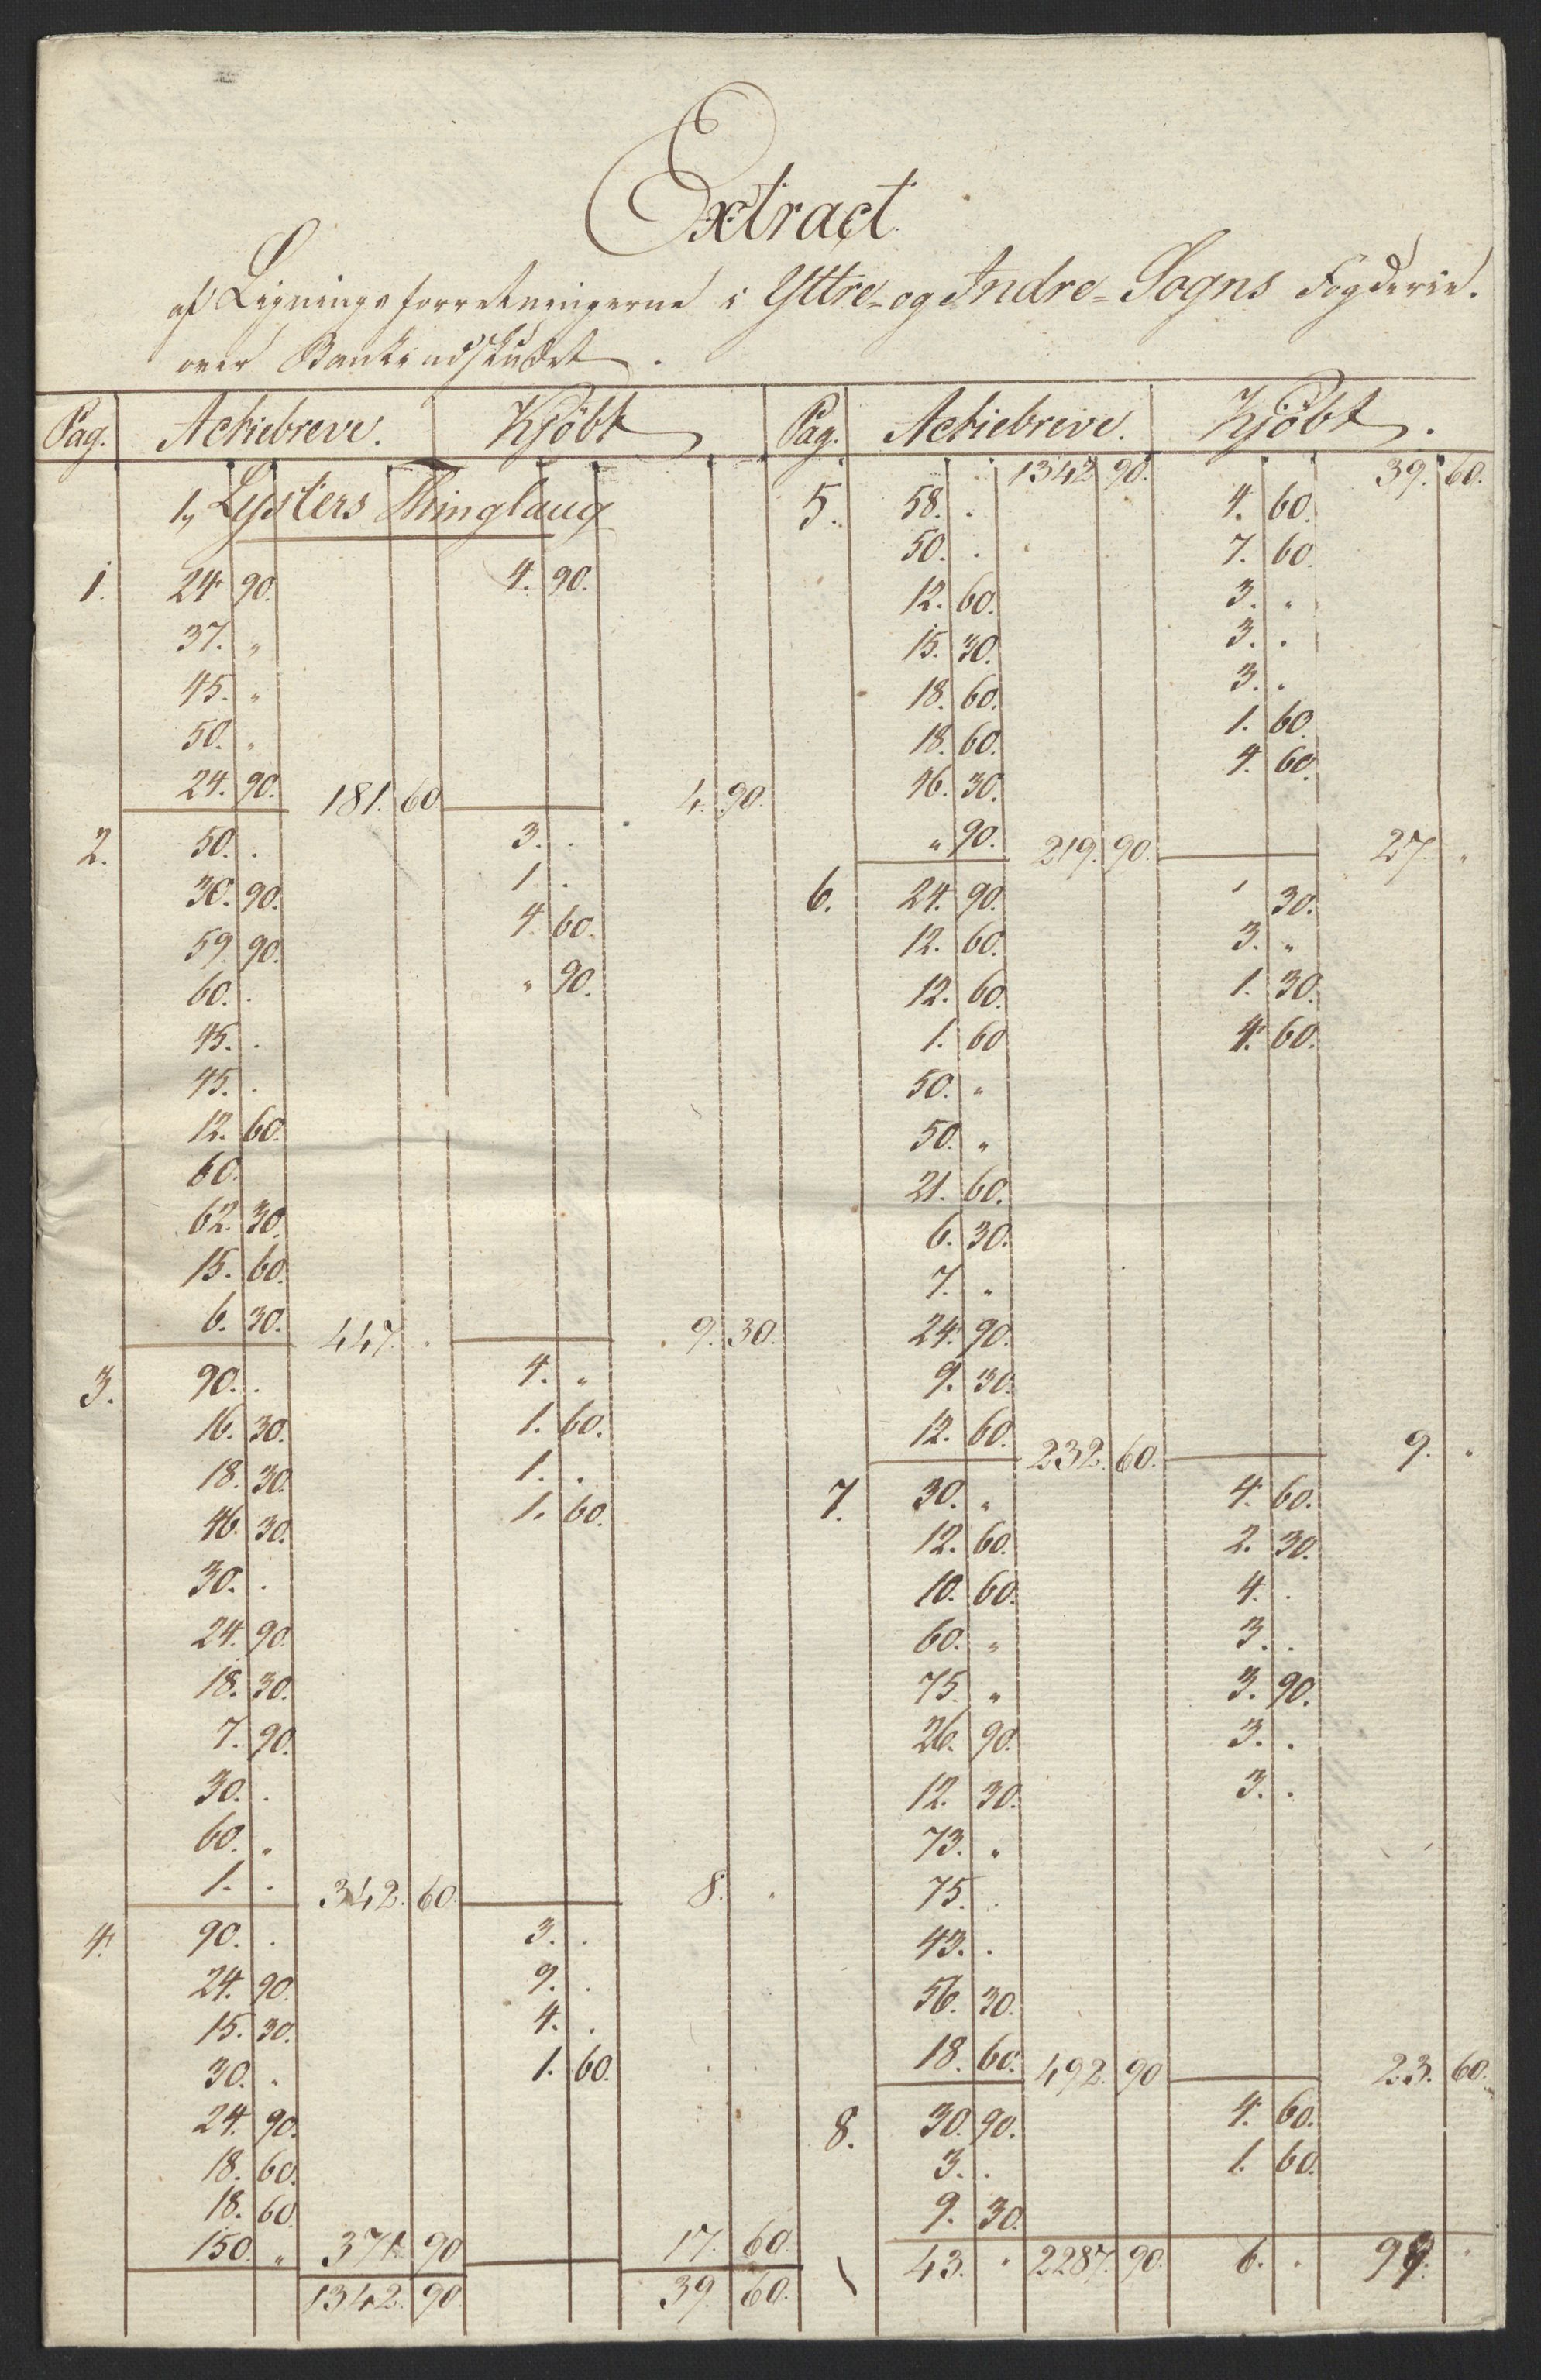 Extract
af Ligningsforretningerne i Yttre- og Indre- Sogns Fogderie.
over Bankindskudet.
Pag. Actiebreve. Kjöbt Pag. Actiebreve. Kjöbt.
1, Lysters Thinglaug
1. 24 90. 4. 90.
37. "
45. "
50. "
24. 90. 181. 60 4. 90.
2. 50. . 3. .
30. 90. 1 .
59. 90. 4. 60.
60. . " 90.
45. .
45. .
12. 60.
60.
62. 30.
15. 60.
6. 30. 447. . 9. 30.
3. 90. . 4. "
16. 30. 1. 60.
18. 30. 1. .
46. 30. 1. 60.
30. .
24. 90.
18. 30.
7. 90.
30. .
60. "
1. . 342. 60 8. "
4. 90. . 3. .
24. 90. 9. .
15. 30. 4. .
30. " 1. 60.
24. 90.
18. 60.
18. 60
150. " 371. 90 17. 60.
1342. 90. 39. 60.
1342 90. 39. 60.
5. 58. . 4. 60.
50. . 7. 60.
12. 60. 3. "
15. 30. 3. .
18. 60. 3. "
18. 60. 1. 60.
46. 30. 4. 60.
" 90. 219. 90. 27. "
6. 24. 90. ' 30.
12. 60. 3. "
12. 60. 1. 30.
1. 60 4. 60.
50. "
50. "
21. 60.
6. 30.
7. "
24. 90.
9. 30.
12. 60. 232. 60. 9. "
7. 30. " 4. 60.
12. 60. 2. 30.
10. 60. 4. .
60. " 3. .
75. " 3. 90.
26. 90. 3. .
12. 30. 3. .
73. "
75. .
43. .
56. 30.
18. 60. 492. 90 23. 60.
8. 30. 90. 4. 60.
3. . 1. 60.
9. 30.
43. " 2287. 90. 6. . 99. .